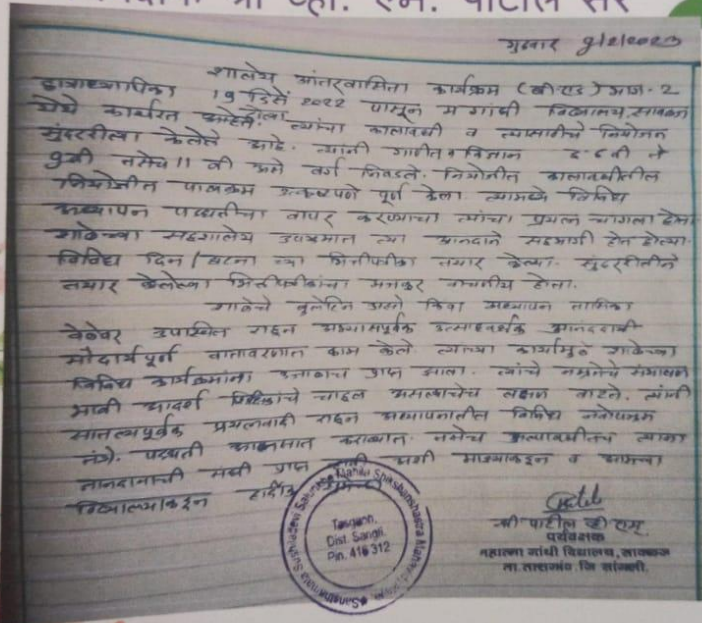 श्री व्ही. एम. पाटील सर
गुरुवार 9/2/2023
शालेय आंतरवासिता कार्यक्रम (बी.एड) भाग - 2
छात्राध्यापिका 19 डिसें 2022 पासून म गांधी विद्यालय, सावळज
येथे कार्यरत त्यांचा कालावधी व त्यासाठीचे नियोजन
सुंदररीत्या केलेले आहे. त्यांनी गणित व विज्ञान इ. 8 वी ते
9वी तसेच 11 वी असे वर्ग निवडले. नियोजीत कालावधीतील
नियोजीत पाठ्यक्रम उत्कृष्टपणे पूर्ण केला. त्यामध्ये विविध
अध्यापन पध्दतीचा वापर करण्याचा त्यांचा प्रयत्न चांगला होता
शाळेच्या सहशालेय उपक्रमात त्या आनंदाने सहभागी होत होत्या.
विविध दिन / घटना च्या भित्तीपत्रीका तयार केल्या. सुंदररीतीने
तयार केलेल्या भित्तीपत्रीकांचा मजकूर वाचनीय होता.
शाळेचे बुलेटिन असो किंवा अध्यापन तासिका
वेळेवर उपस्थित राहून अभ्यासपूर्वक उत्साहवर्धक आनंददायी
सौदार्यपूर्ण वातावरणात काम केले. त्यांच्या कार्यामुळे शाळेच्या
विविध कार्यक्रमांना प्राप्त झाला. त्यांचे नम्रतेचे संभाषण
भावी आदर्श शिक्षिकांचे चाहूल असल्याचेच लक्षण वाटते. त्यांनी
सातत्यपूर्वक प्रयत्नवादी राहून अध्यापनातील विविध नवोपक्रम
तंत्रे. पध्दती आत्मसात कराव्यात. तसेच त्यांना
ज्ञानदानाची संधी प्राप्त अशी माझ्याकडून व आमच्या
विद्यालयाकडून हार्दिक
Tasgaon,
Dist. Sangli.
Pin. 416 312
श्री पाटील व्ही एम्
पर्यवेक्षक
महात्मा गांधी विद्यालय, सावळज
ता. तासगांव, जि सांगली.